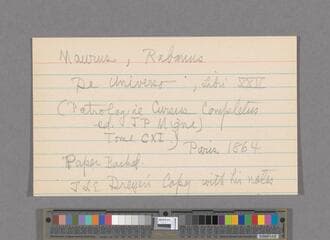 Maurus, Rabanus
De Universo, Libri XXII
(Patrologie Cursus Completus
ed. J P Migne)
Tome CXI.)
Paris 1864
Paper Backed.
J L E Dreyer's Copy with his notes